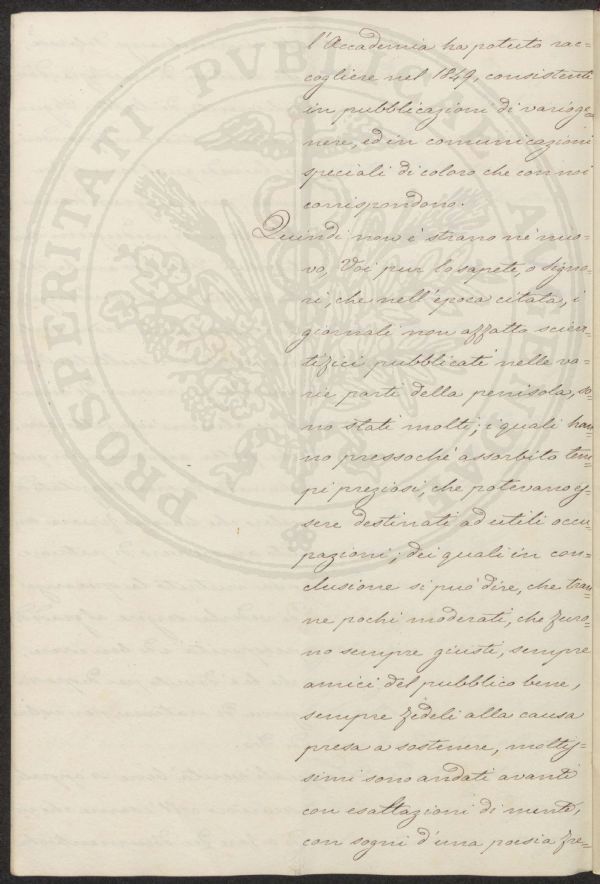 l'Accademia ha potuto rac=
cogliere nel 1849, consistenti
in pubblicazioni di vario ge=
nere, ed in comunicazioni
speciali di coloro che con noi
corrispondono.
Quindi non è strano nè nuo-
vo, Voi pur lo sapete, o Signo-
ri, che nell'epoca citata, i
giornali non affatto scien-
tifici pubblicati nelle va-
rie parti della penisola, so=
no stati molti; i quali han=
no pressochè assorbito tem=
pi preziosi, che potevano es=
sere destinati ad utili occu=
pazioni; dei quali in con=
clusione si può dire, che tran=
ne pochi moderati, che furo=
no sempre giusti, sempre
amici del pubblico bene,
sempre fedeli alla causa
presa a sostenere, moltis=
simi sono andati avanti
con esaltazioni di mente,
con sogni d'una poesia fre=
PROSPERITATI PUBLICAE AUGENDAE